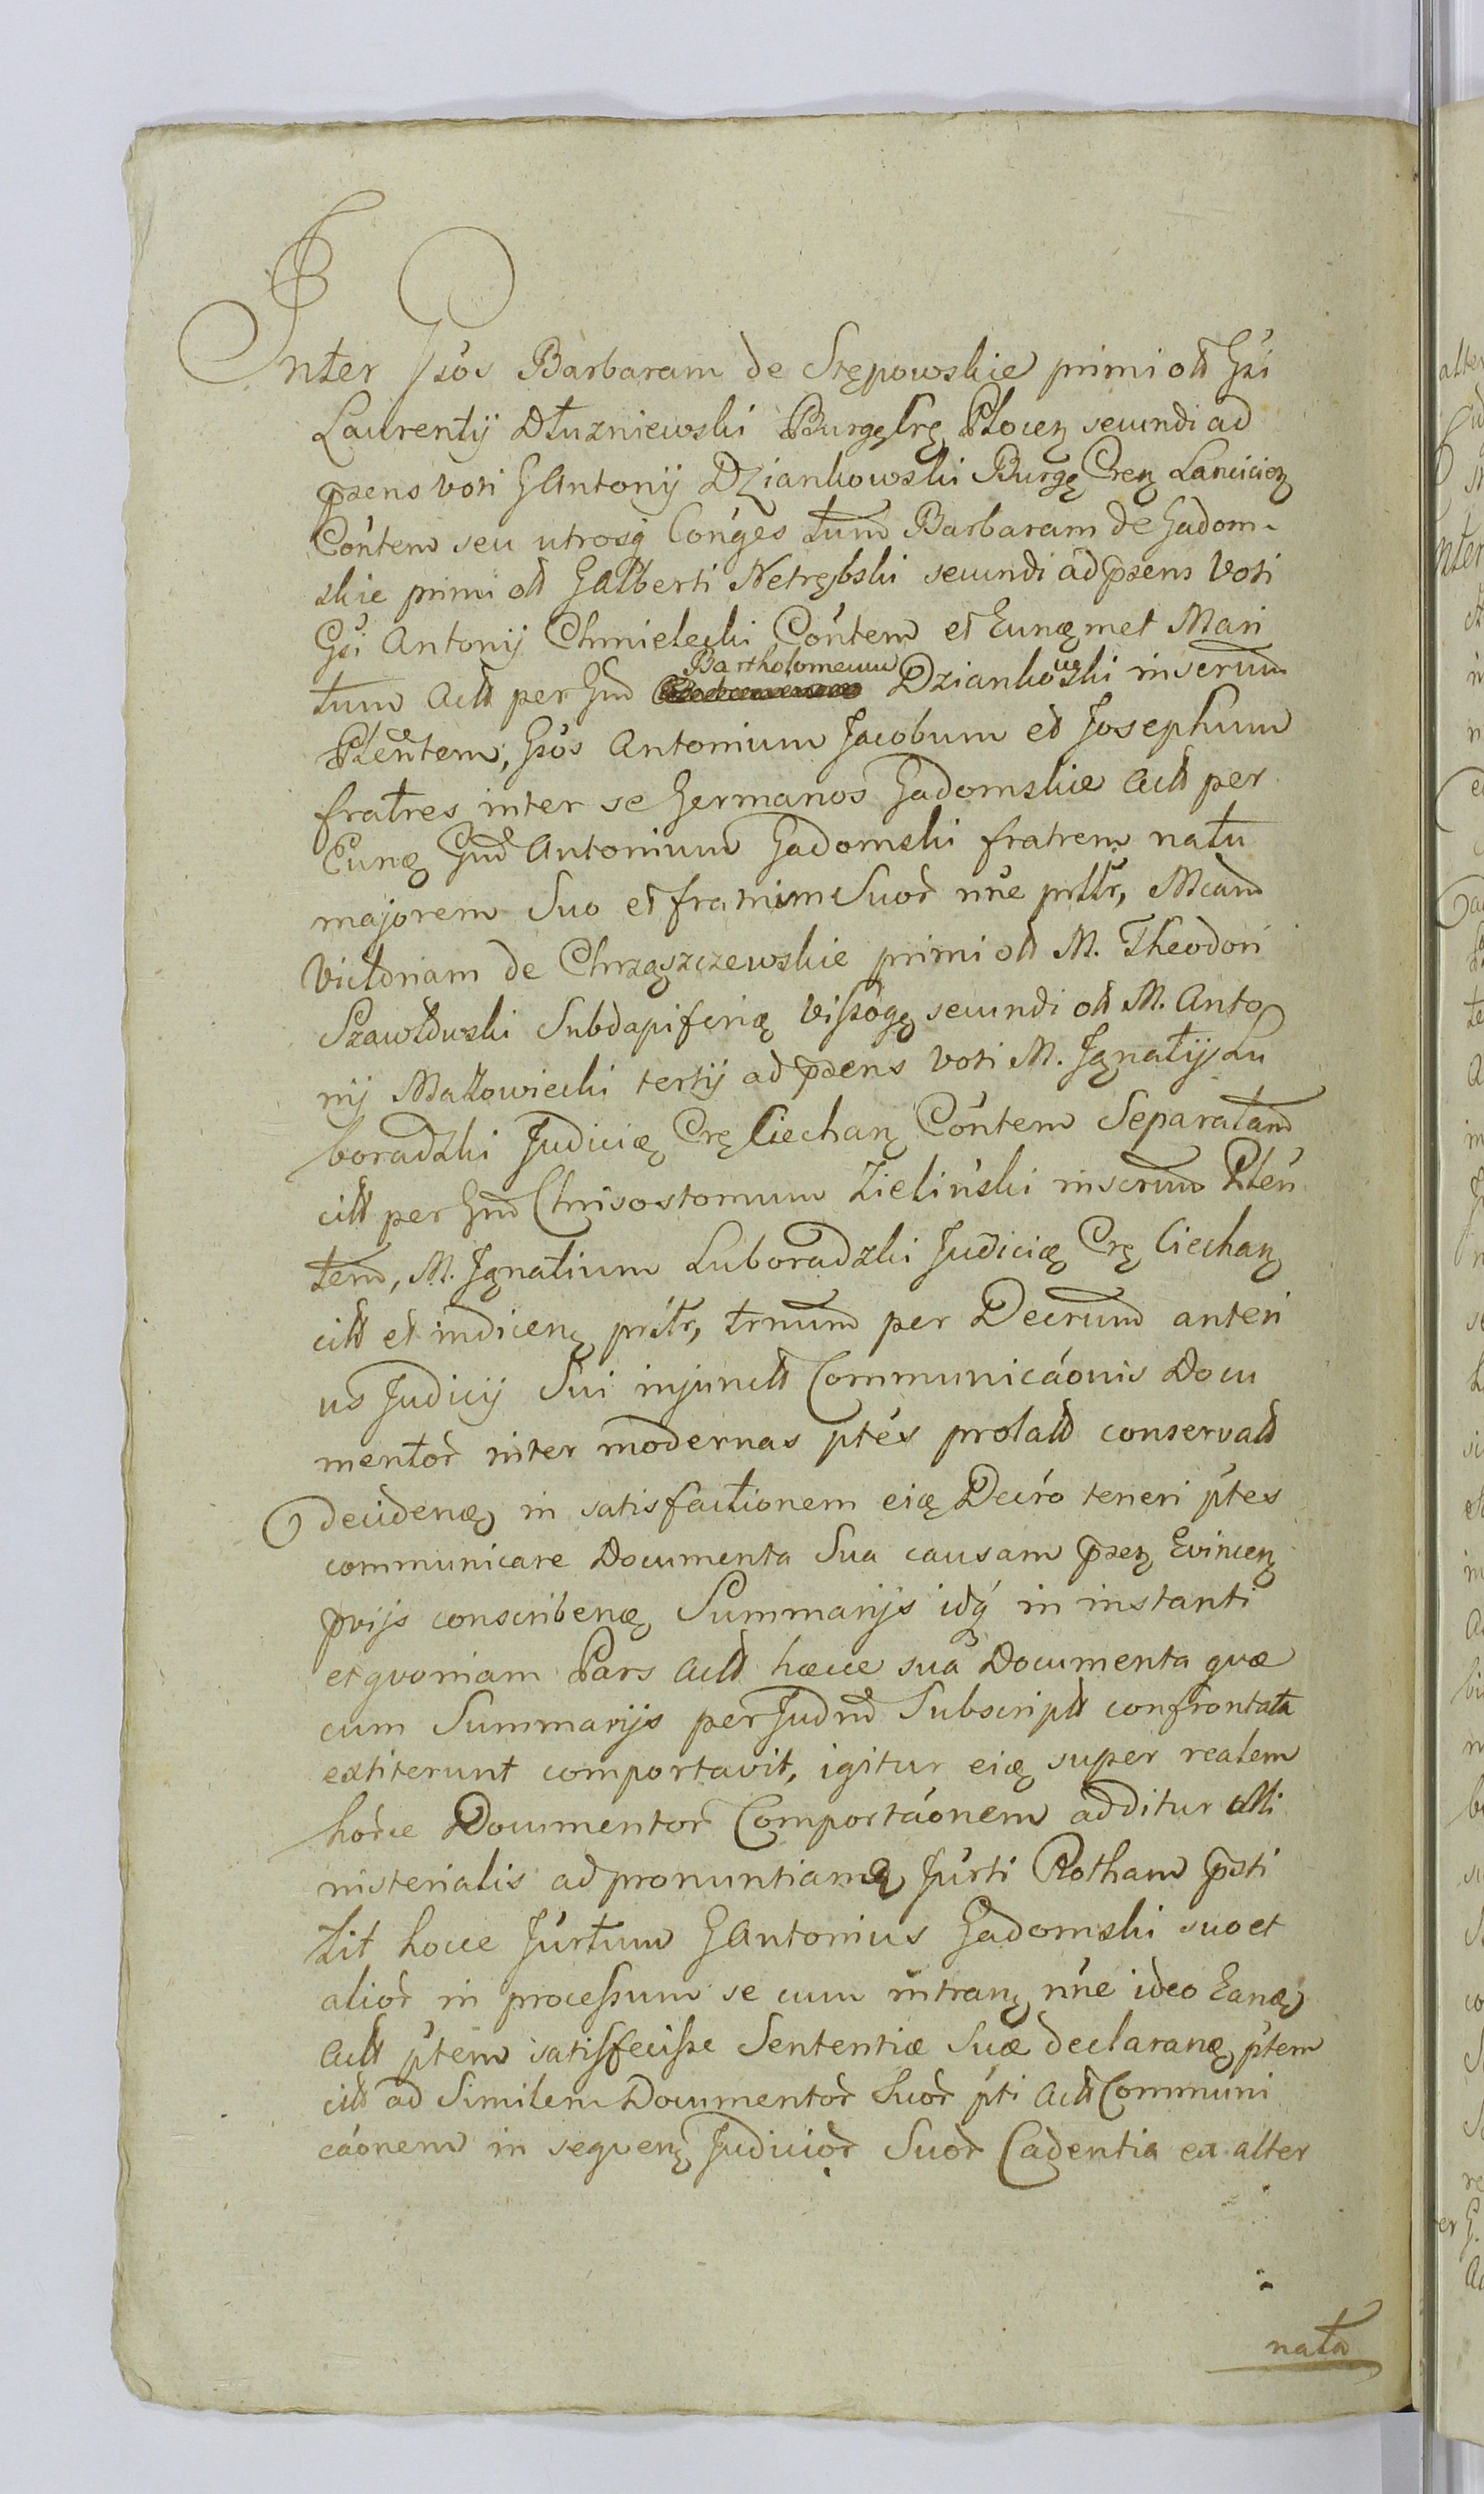 Inter Gsos Barbaram de Stępowskie primi olt Gsi
Laurentij Dłuzniewski Burgę Crę Plocen secundi ad
prsens voti G Antonij Dziankowski Burgę Cren Lancicien
Contem seu utrosq Conges tum Barbaram de Gadom-
skie primi olt G Alberti Netrębski secundi ad prsens voti
Gsi Antonij Chmielecki Contem et Eunąmet Mari
tum Actt per Gnd Bartholomeum Dziankowski inserum
Plentem, Gsos Antonium Jacobum et Josephum
fratres inter se Germanos Gadomskie Actt per
Eunq Gnd Antonium Gadomski fratrem natu
majorem Suo et fratrum Suor nne prttr, Mcam
Victoriam de Chrząszczewskie primi olt M. Theodori
Szawłowski Subdapiferią Vissogę secundi olt M. Anto
nij Makowiecki tertij ad prsens voti M. Ignatij Lu
boradzki Judicią Crę Ciechan Contem Separatam
citt per Gnd Chrisostomum Zieliński inserum Plen
tem, M. Ignatium Luboradzki Judicią Crę Ciechan
citt et indicen prttr, trnum per Decrum anteri
us Judicij Sui injunctt Communicaonis Docu
mentor inter modernas ptes prolatt conservatt
decidenq in satisfactionem eią Decro teneri ptes
communicare Documenta Sua causam prsen Evincen
prvijs conscribenq Summarijs idq in instanti
et qvoniam Pars Actt haecce sua Documenta qvae
cum Summarijs per Judnd Subscriptt confrontata
extiterunt comportavit, igitur eią super realem
horce Documentor Comportaonem additur Mi
nisterialis ad pronuntianq Jurti Rotham prsti
tit hocce Jurtum G Antonius Gadomski suo et
alior in processum se cum intran nne ideo Eanq
Actt ptem satisfecisse Sententiae Suae declaranq ptem
citt ad Similem Documentor Suor pti Actt Communi
caonem in seqven Judicior Suor Cadentia ex alter
nata